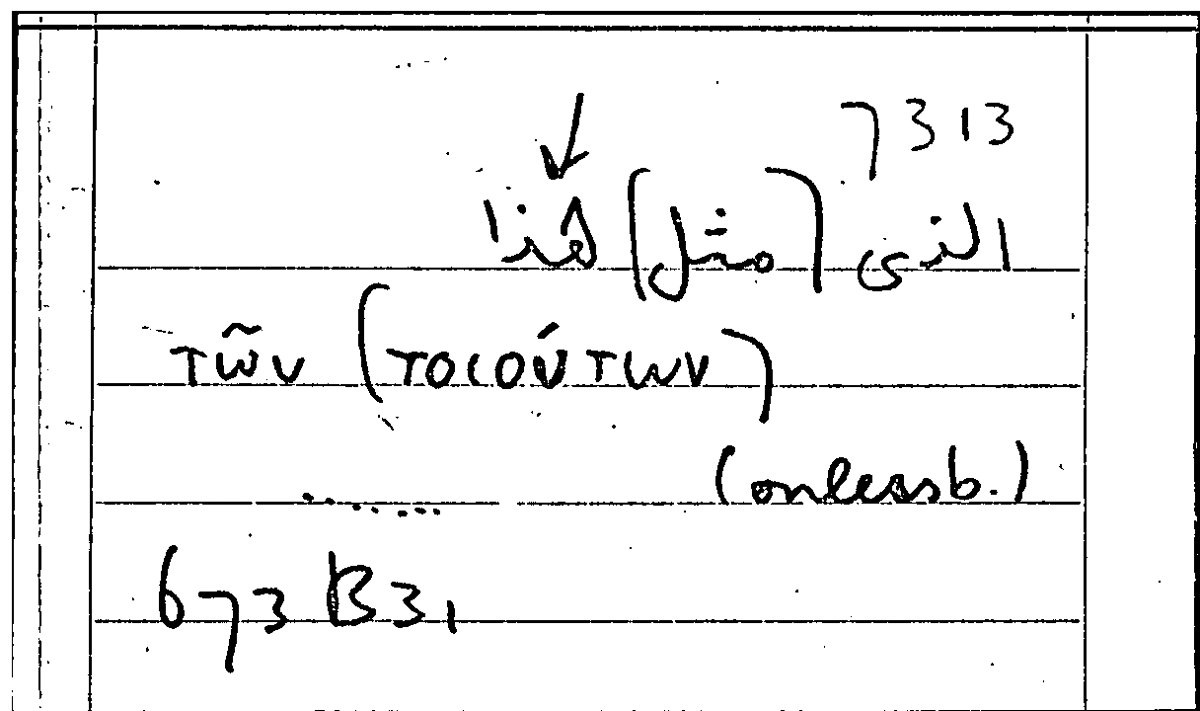 7313
↓
الذى (مثل) هذا
τῶν (τοιούτων)
(onleesb.)
......
673 B31